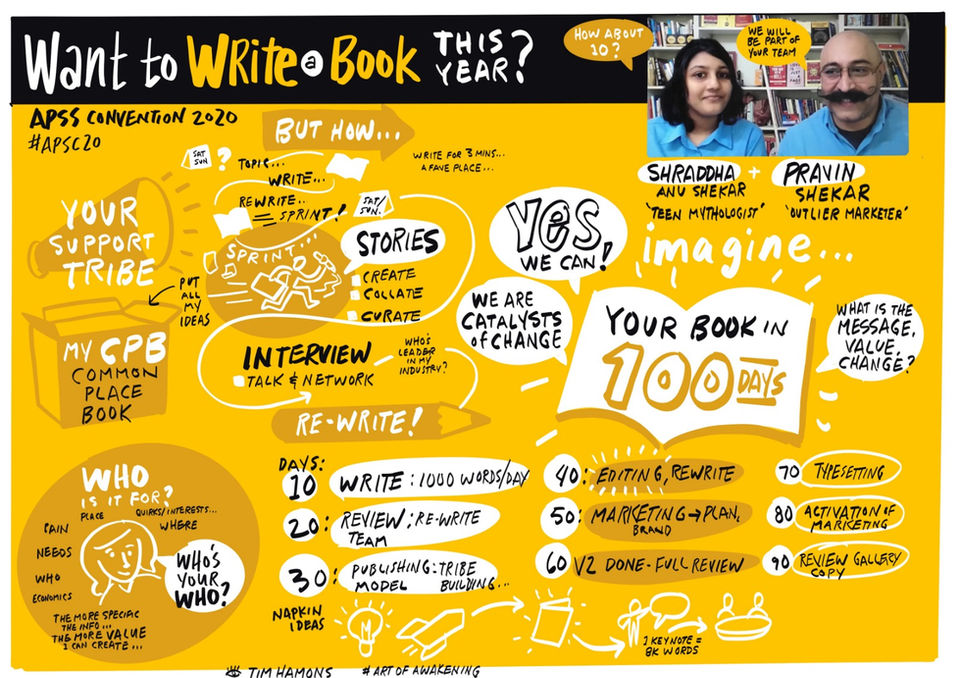 WANT to WRITE a BOOK THIS YEAR?
HOW ABOUT
10?
WE WILL
BE PART OF
YOUR TEAM
APSS CONVENTION 2020
#APSC20
BUT HOW...
SAT
SUN
?
TOPIC...
WRITE...
REWRITE..
SPRINT!
SAT/
SUN.
WRITE FOR 3 MINS...
A FAVE PLACE...
SHRADDHA +
ANU SHEKAR
'TEEN MYTHOLOGIST'
PRAVIN
SHEKAR
'OUTLIER MARKETER'
YOUR
SUPPORT
TRIBE
SPRINT...
STORIES
CREATE
COLLATE
CURATE
YES,
WE CAN!
imagine...
PUT
ALL
MY
IDEAS
MY CPB
COMMON
PLACE
BOOK
INTERVIEW
TALK & NETWORK
WHO'S
LEADER
IN MY
INDUSTRY?
WE ARE
CATALYSTS
of CHANGE
YOUR BOOK IN
100 DAYS
WHAT IS THE
MESSAGE,
VALUE,
CHANGE?
RE-WRITE!
WHO
IS IT FOR?
PLACE
QUIRKS/INTERESTS...
PAIN
WHERE
NEEDS
WHO
ECONOMICS
WHO'S
YOUR
WHO?
THE MORE SPECIFIC
THE INFO...
THE MORE VALUE
I CAN CREATE...
DAYS:
10 WRITE: 1000 WORDS/DAY
20: REVIEW: RE-WRITE
TEAM
30: PUBLISHING: TRIBE
MODEL BUILDING...
40: EDITING, REWRITE
50: MARKETING→PLAN,
BRAND
60 V2 DONE-FULL REVIEW
70 TYPESETTING
80 ACTIVATION OF
MARKETING
90 REVIEW GALLERY
COPY
NAPKIN
IDEAS
1 KEYNOTE =
8K WORDS
TIM HAMONS #ART OF AWAKENING